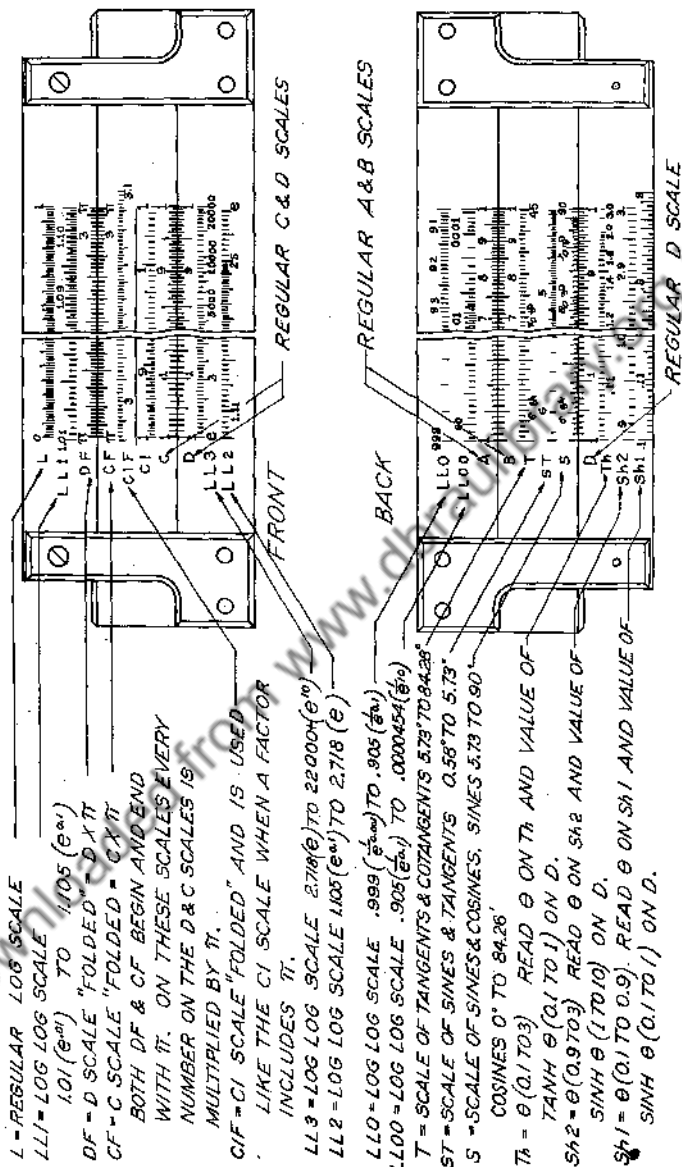 L = REGULAR LOG SCALE
LL1 = LOG LOG SCALE
1.01 (e^0.01) TO 1.105 (e^0.1)
DF = D SCALE "FOLDED" = D X π
CF = C SCALE "FOLDED" = C X π
BOTH DF & CF BEGIN AND END
WITH π. ON THESE SCALES EVERY
NUMBER ON THE D & C SCALES IS
MULTIPLIED BY π.
CIF = CI SCALE "FOLDED" AND IS USED
LIKE THE CI SCALE WHEN A FACTOR
INCLUDES π.
LL3 = LOG LOG SCALE 2.718(e) TO 22000+(e^10)
LL2 = LOG LOG SCALE 1.105(e^0.1) TO 2.718 (e)
L
LL1
DF
CF
CIF
CI
C
D
LL3
LL2
FRONT
REGULAR C & D SCALES
LL0 = LOG LOG SCALE .999 TO .905
LL00 = LOG LOG SCALE .905 TO .0000454
T = SCALE OF TANGENTS & COTANGENTS 5.73° TO 84.28°
ST = SCALE OF SINES & TANGENTS 0.58° TO 5.73°
S = SCALE OF SINES & COSINES. SINES 5.73 TO 90°
COSINES 0° TO 84.26'
Th = θ (0.1 TO 3) READ θ ON Th AND VALUE OF
TANH θ (0.1 TO 1) ON D.
Sh2 = θ (0.9 TO 3) READ θ ON Sh2 AND VALUE OF
SINH θ (1 TO 10) ON D.
Sh1 = θ (0.1 TO 0.9). READ θ ON Sh1 AND VALUE OF
SINH θ (0.1 TO 1) ON D.
BACK
LL0
LL00
A
B
T
ST
S
D
Th
Sh2
Sh1
REGULAR A & B SCALES
REGULAR D SCALE
nloaded from www.dbraulibrary.org